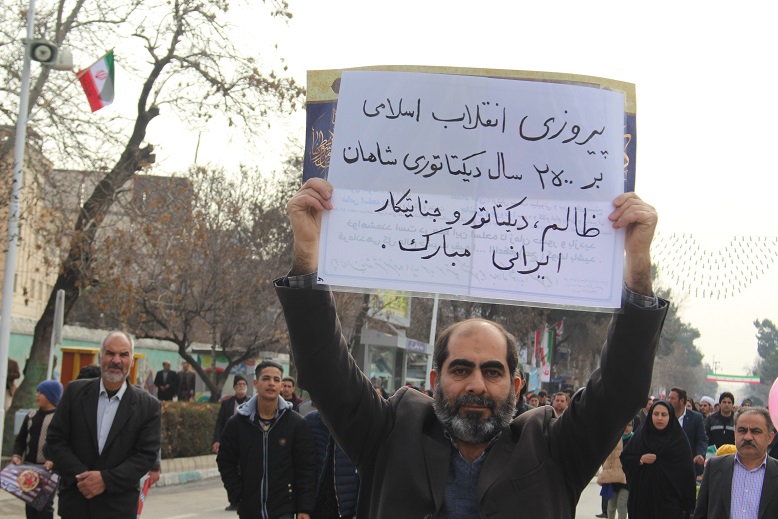 پیروزی انقلاب اسلامی
بر ۲۵۰۰ سال دیکتاتوری شاهان
ظالم، دیکتاتور و جنایتکار
ایرانی مبارک.